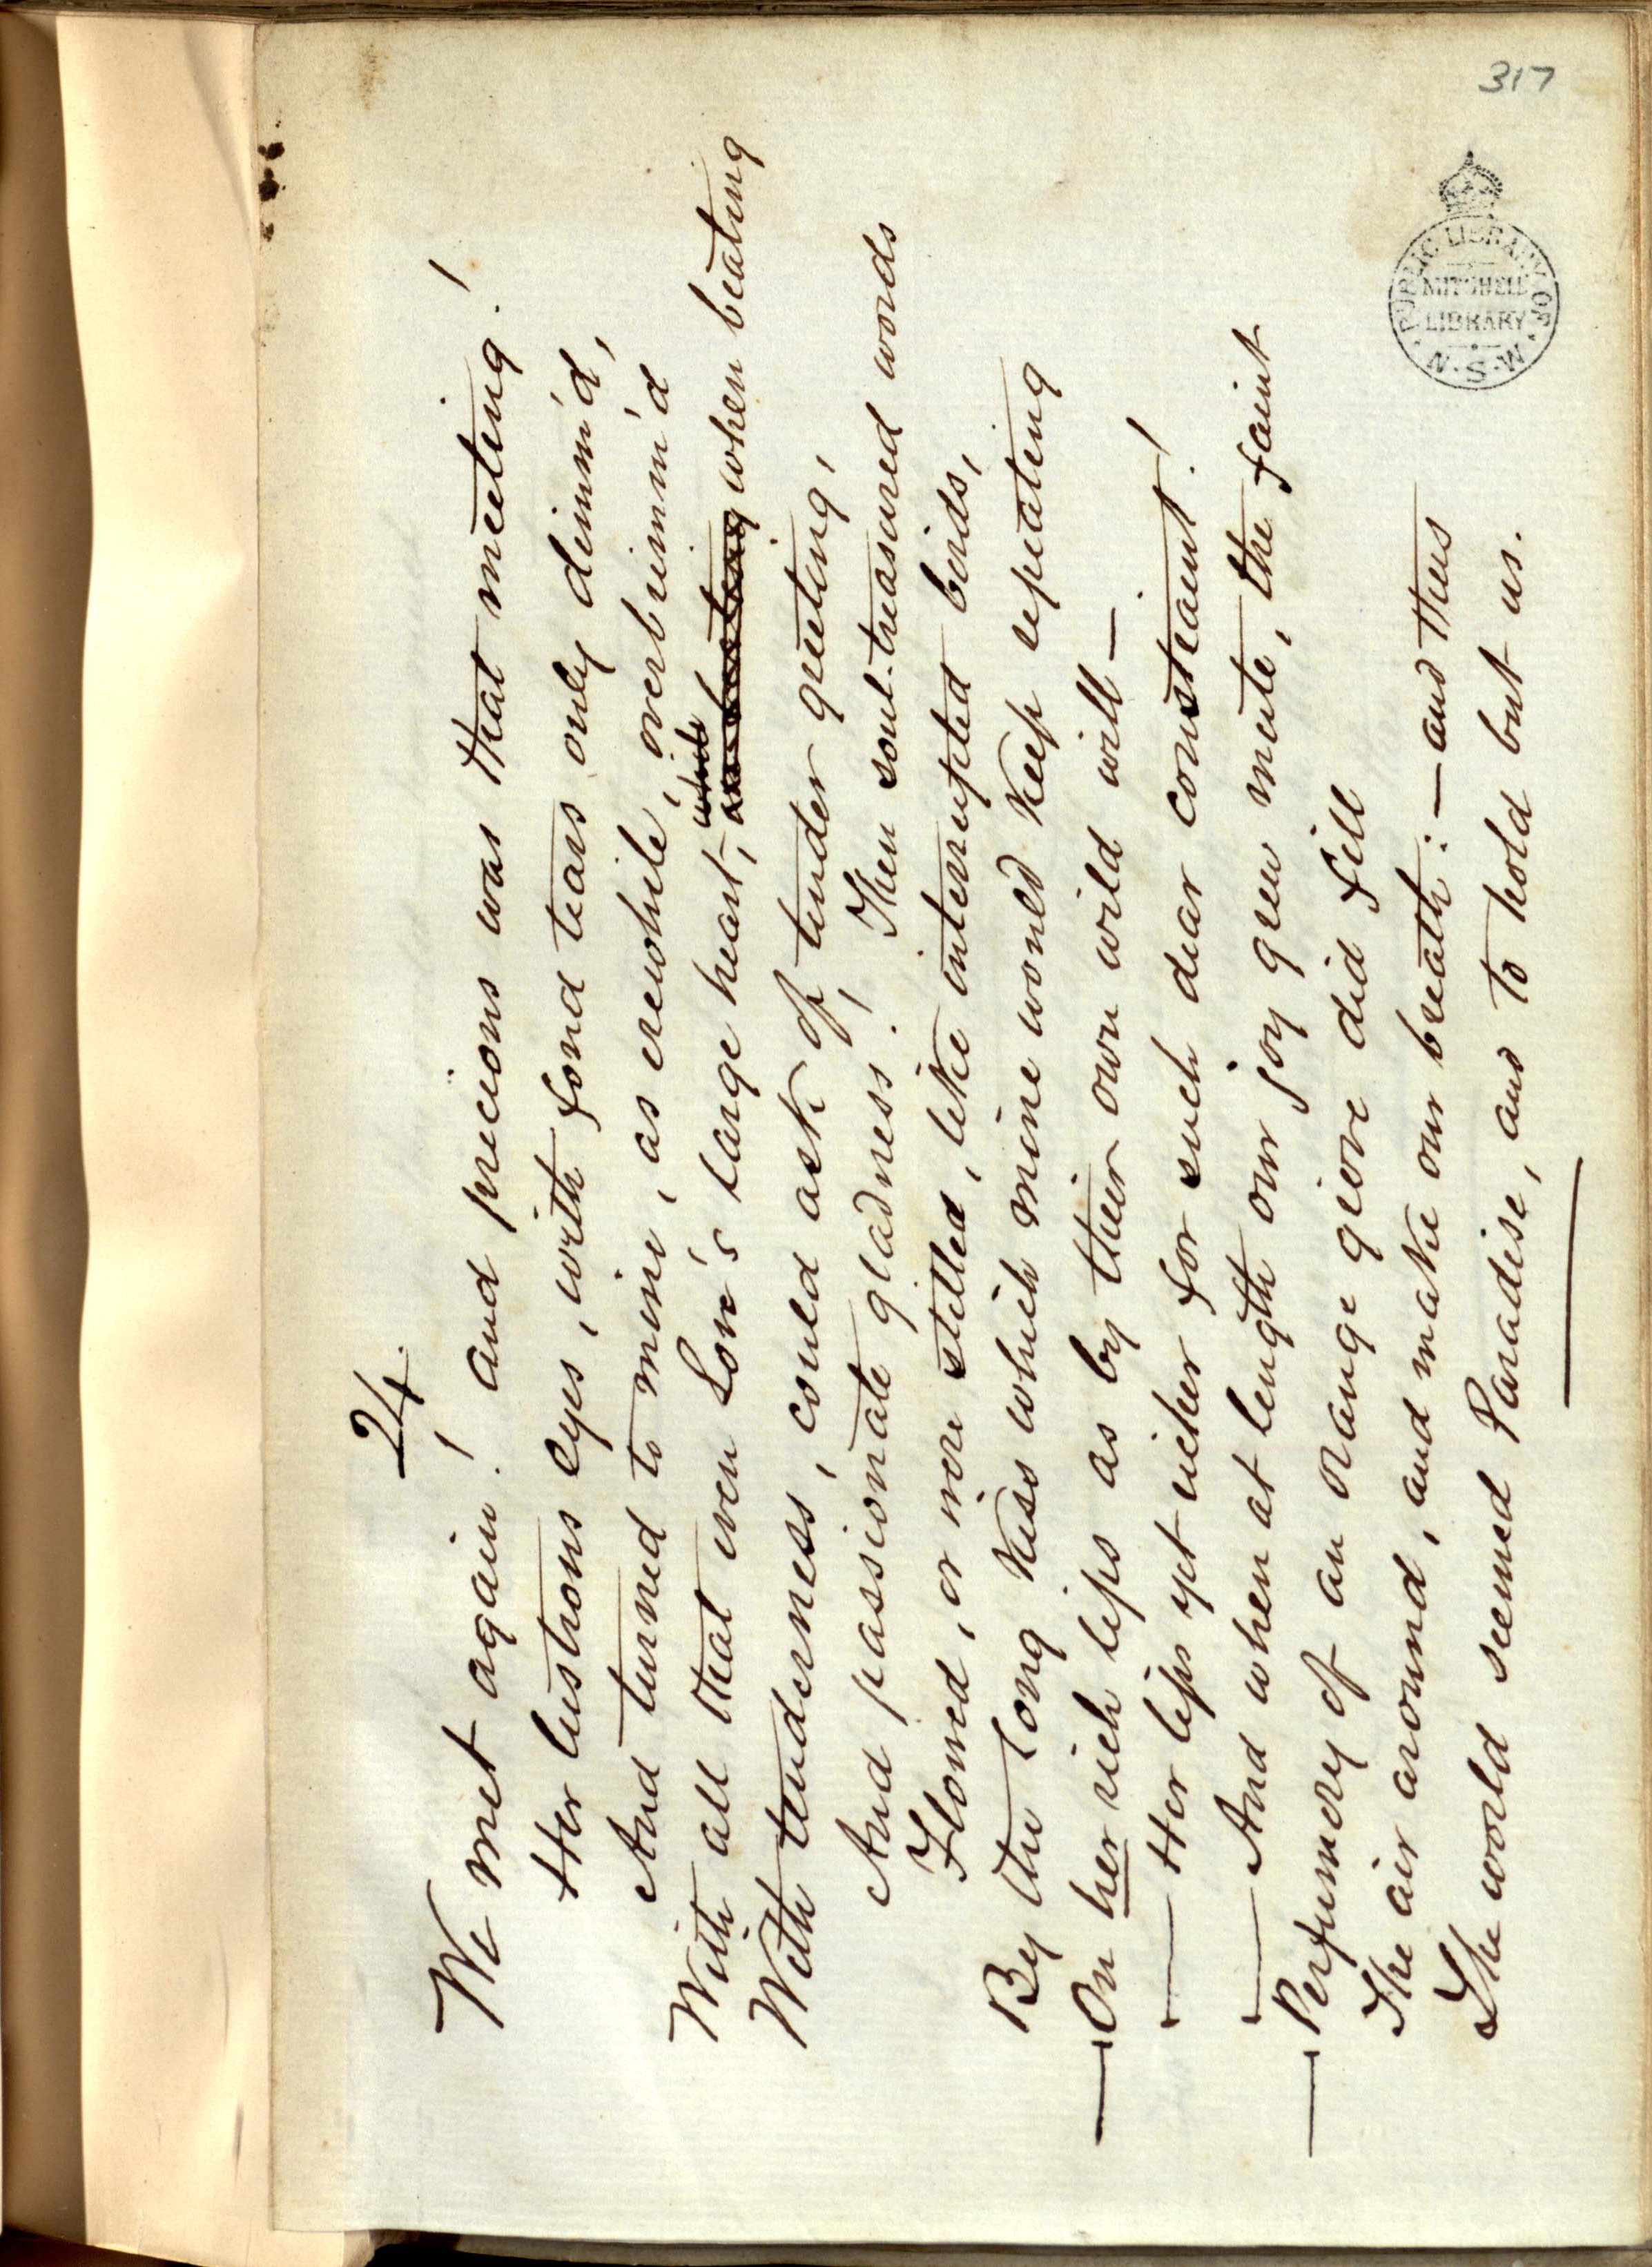 317
24.
We met again! and precious was that meeting!
Her lustrous eyes, with fond tears only dimm'd,
And turned to mine, as erewhile, overbrimm'd
while
With all that even Love's large heart, when beating
With tenderness, could ask of tender greeting,
And passionate gladness! Then soul-treasured words
Flowed, or were stilled, like interrupted birds,
By the long kiss which mine would keep repeating
—On her rich lips as by their own wild will—
— Her lips yet richer for such dear constraint!
— And when at length our joy grew mute, the faint
—Perfumery of an orange grove did fill
The air around, and make our breath:—and thus
The world seemed Paradise, and to hold but us.
PUBLIC LIBRARY OF N.S.W.
MITCHELL
LIBRARY